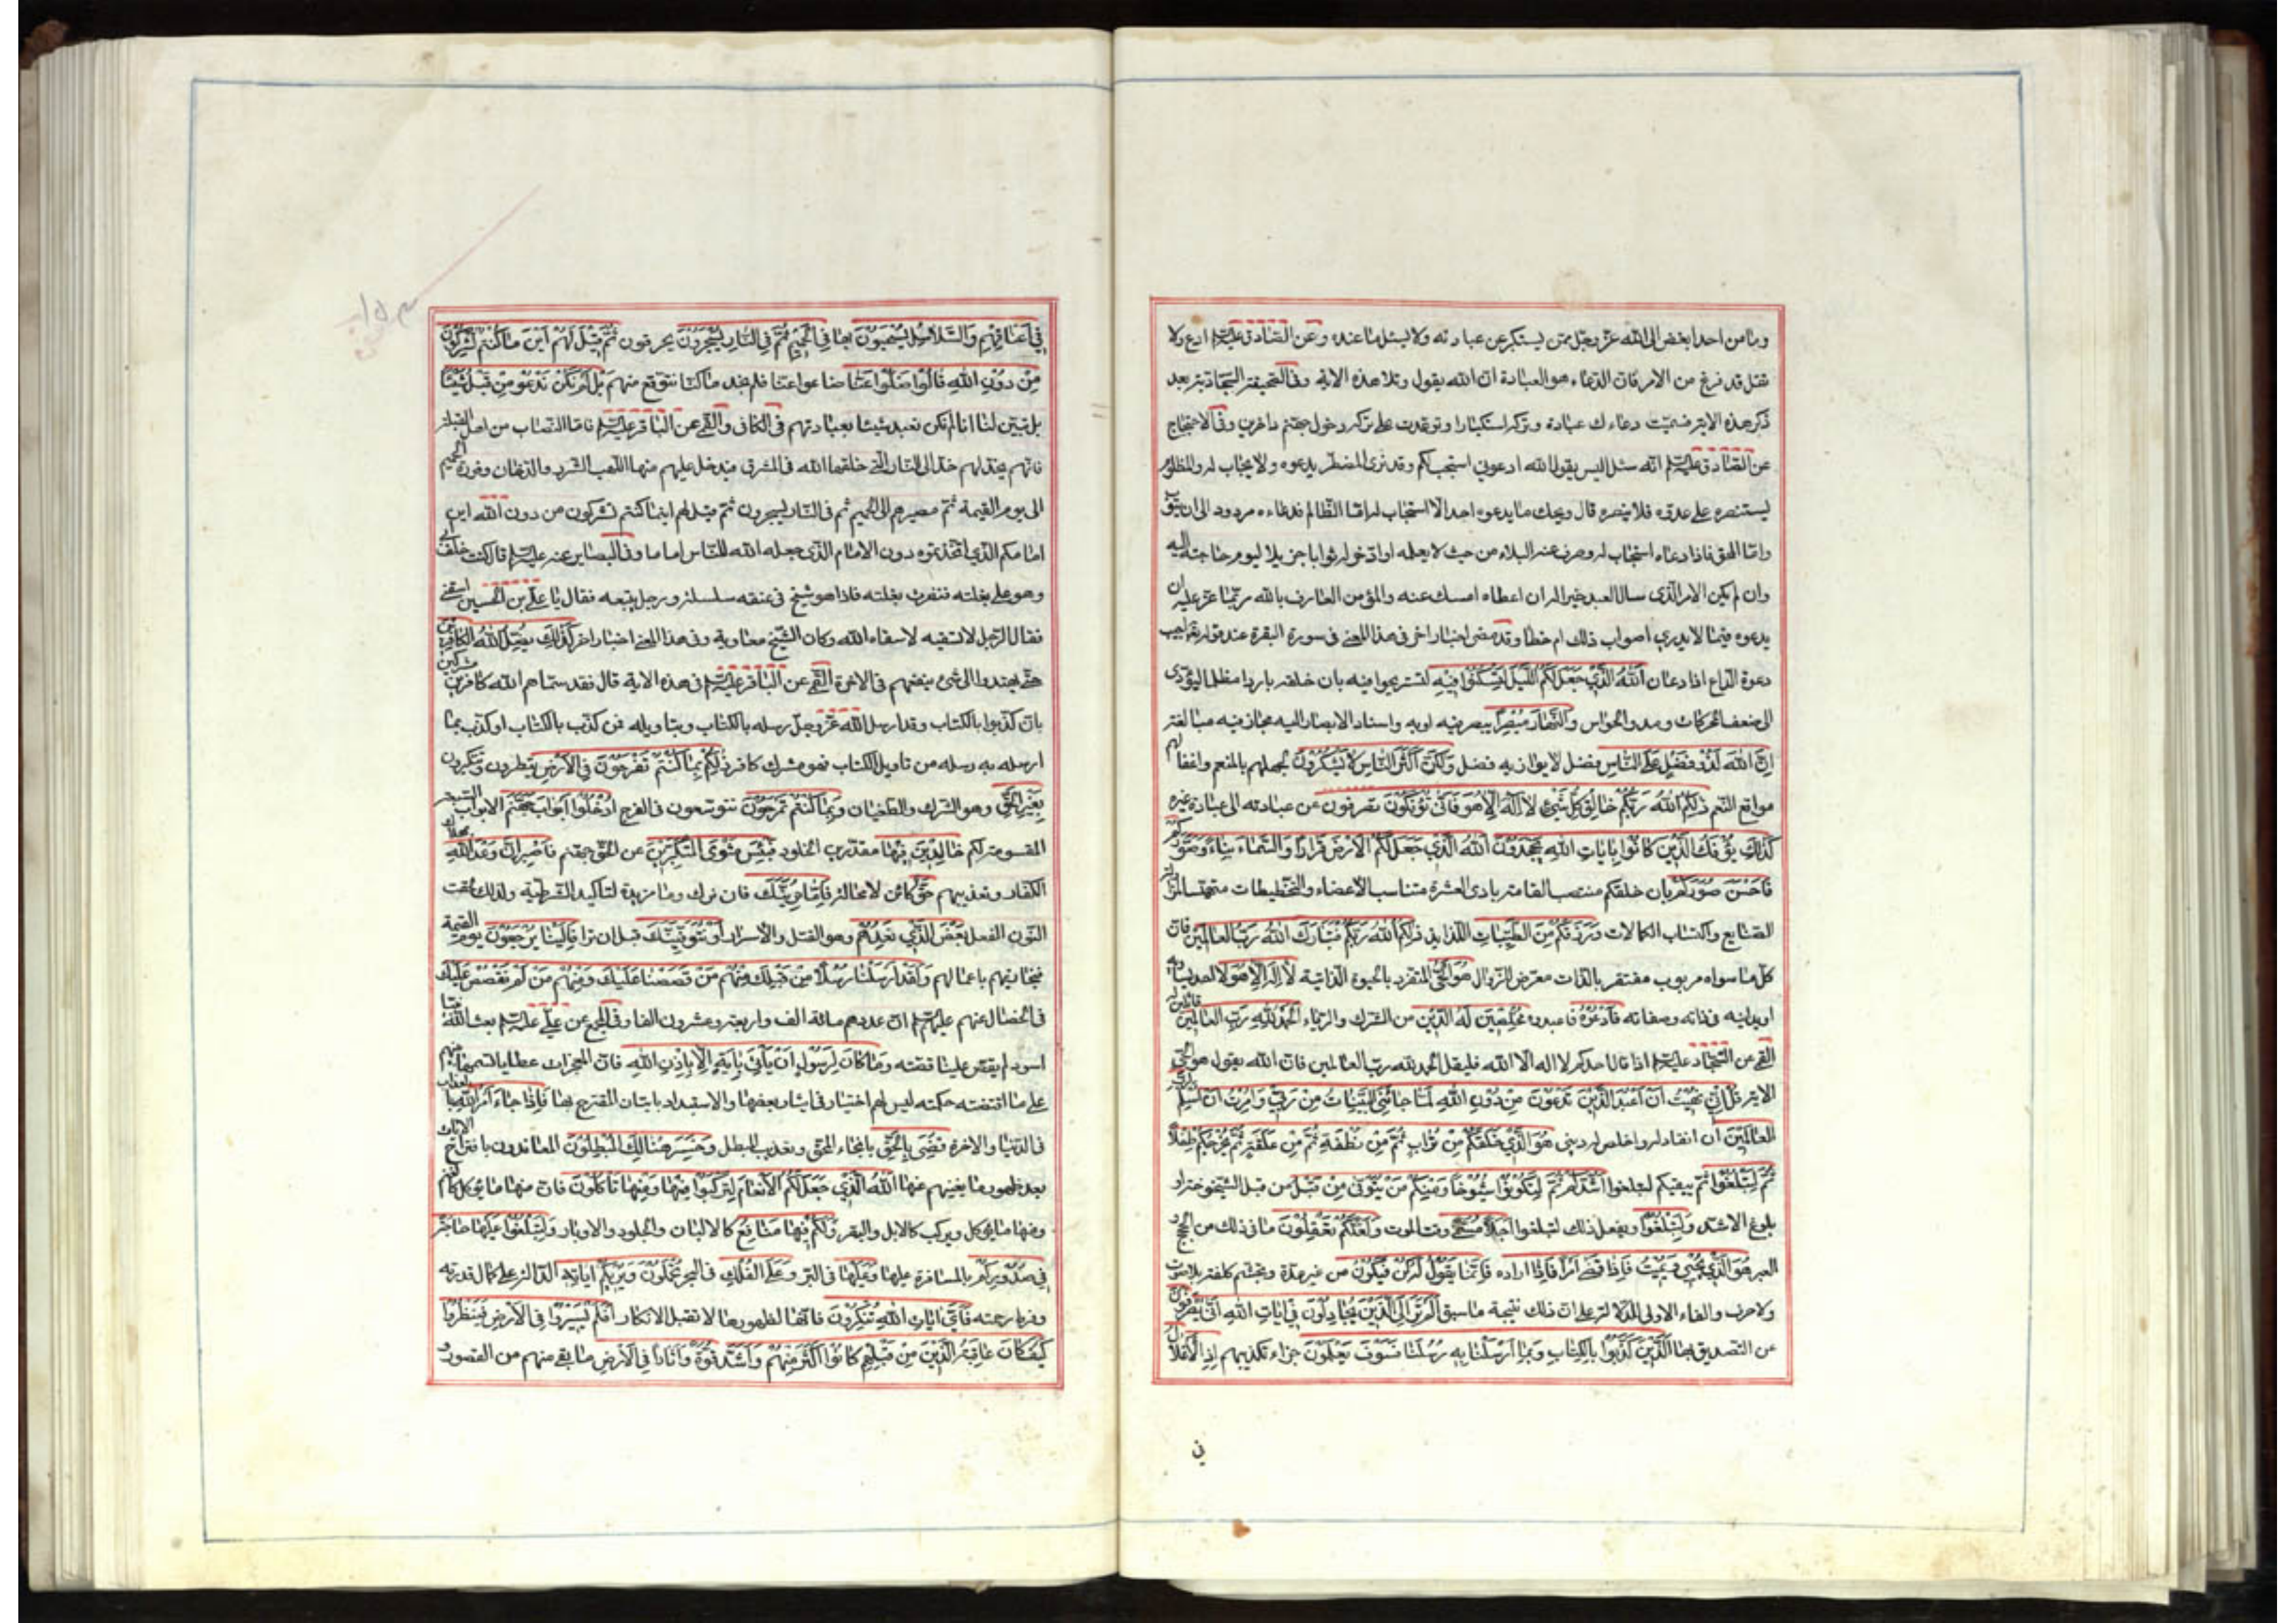 وما من احد ابغض الى الله عز وجل ممن يستكبر عن عبادته ولا يسئل ما عنده وعن الصادق عليه السلم ادع ولا
تقل قد فرغ من الامر فان الدعاء هو العبادة ان الله يقول وتلا هذه الاية وفى الصحيفة السجادية بعد
ذكر هذه الاية فسميت دعاءك عبادة وتركه استكبارا وتوعدت على تركه دخول جهنم داخرين وفى الاحتجاج
عن الصادق عليه السلم انه سئل اليس يقول الله ادعونى استجب لكم وقد نرى المضطر يدعوه ولا يجاب له والمظلوم
يستنصره على عدوه فلا ينصره قال ويحك ما يدعوه احد الا استجاب له اما الظالم فدعاءه مردود الى ان يتوب
واما المحق فاذا دعاه استجاب له وصرف عنه البلاء من حيث لا يعلمه او ادخر له ثوابا جزيلا ليوم حاجته اليه
وان لم يكن الامر الذى سال العبد خيرا له ان اعطاه امسك عنه والمؤمن العارف بالله ربما عز عليه ان
يدعوه فيما لا يدرى اصواب ذلك ام خطا وقد مضى اخبار اخر فى هذا المعنى فى سورة البقرة عند قوله تعالى اجيب
دعوة الداع اذا دعان اَللّٰهُ الَّذِي جَعَلَ لَكُمُ اللَّيْلَ لِتَسْكُنُوا فِيهِ لتستريحوا فيه بان خلقه باردا مظلما ليؤدى
الى ضعف الحركات وهدو الحواس وَالنَّهَارَ مُبْصِرًا يبصر فيه او به واسناد الابصار اليه مجاز فيه مبالغة
اِنَّ اللّٰهَ لَذُو فَضْلٍ عَلَى النَّاسِ فضل لا يوازيه فضل وَلٰكِنَّ اَكْثَرَ النَّاسِ لَا يَشْكُرُونَ لجهلهم بالمنعم واغفالهم
مواقع النعم ذٰلِكُمُ اللّٰهُ رَبُّكُمْ خَالِقُ كُلِّ شَيْءٍ لَا اِلٰهَ اِلَّا هُوَ فَاَنّٰى تُؤْفَكُونَ تصرفون عن عبادته الى عبادة غيره
كَذٰلِكَ يُؤْفَكُ الَّذِينَ كَانُوا بِاٰيَاتِ اللّٰهِ يَجْحَدُونَ اَللّٰهُ الَّذِي جَعَلَ لَكُمُ الْاَرْضَ قَرَارًا وَالسَّمَاءَ بِنَاءً وَصَوَّرَكُمْ
فَاَحْسَنَ صُوَرَكُمْ بان خلقكم منتصب القامة بادى البشرة متناسب الاعضاء والتخطيطات متهيئا لمزاولة
الصنايع واكتساب الكمالات وَرَزَقَكُمْ مِنَ الطَّيِّبَاتِ اللذايذ ذٰلِكُمُ اللّٰهُ رَبُّكُمْ فَتَبَارَكَ اللّٰهُ رَبُّ الْعَالَمِينَ فان
كل ما سواه مربوب مفتقر بالذات معرض للزوال هُوَ الْحَيُّ المتفرد بالحيوة الذاتية لَا اِلٰهَ اِلَّا هُوَ لا احد يساويه
او يدانيه فى ذاته وصفاته فَادْعُوهُ فاعبدوه مُخْلِصِينَ لَهُ الدِّينَ من الشرك والرياء اَلْحَمْدُ لِلّٰهِ رَبِّ الْعَالَمِينَ قائلين له
القمى عن السجاد عليه السلم اذا قال احدكم لا اله الا الله فليقل الحمد لله رب العالمين فان الله يقول هو الحى
الاية قُلْ اِنِّي نُهِيتُ اَنْ اَعْبُدَ الَّذِينَ تَدْعُونَ مِنْ دُونِ اللّٰهِ لَمَّا جَاءَنِيَ الْبَيِّنَاتُ مِنْ رَبِّي وَاُمِرْتُ اَنْ اُسْلِمَ لِرَبِّ
الْعَالَمِينَ ان انقاد له واخلص له دينى هُوَ الَّذِي خَلَقَكُمْ مِنْ تُرَابٍ ثُمَّ مِنْ نُطْفَةٍ ثُمَّ مِنْ عَلَقَةٍ ثُمَّ يُخْرِجُكُمْ طِفْلًا
ثُمَّ لِتَبْلُغُوا ثم يبقيكم لتبلغوا اَشُدَّكُمْ ثُمَّ لِتَكُونُوا شُيُوخًا وَمِنْكُمْ مَنْ يُتَوَفّٰى مِنْ قَبْلُ من قبل الشيخوخة او
بلوغ الاشد وَلِتَبْلُغُوا ويفعل ذلك لتبلغوا اَجَلًا مُسَمًّى وقت الموت وَلَعَلَّكُمْ تَعْقِلُونَ ما فى ذلك من الحجج و
العبر هُوَ الَّذِي يُحْيِي وَيُمِيتُ فَاِذَا قَضٰى اَمْرًا فاذا اراده فَاِنَّمَا يَقُولُ لَهُ كُنْ فَيَكُونُ من غير عدة وتجشم كلفة بلا صوت
ولا حرف والفاء الاولى للدلالة على ان ذلك نتيجة ما سبق اَلَمْ تَرَ اِلَى الَّذِينَ يُجَادِلُونَ فِي اٰيَاتِ اللّٰهِ اَنّٰى يُصْرَفُونَ
عن التصديق بها اَلَّذِينَ كَذَّبُوا بِالْكِتَابِ وَبِمَا اَرْسَلْنَا بِهِ رُسُلَنَا فَسَوْفَ يَعْلَمُونَ جزاء تكذيبهم اِذِ الْاَغْلَالُ
فى
فِي اَعْنَاقِهِمْ وَالسَّلَاسِلُ يُسْحَبُونَ بها فِي الْحَمِيمِ ثُمَّ فِي النَّارِ يُسْجَرُونَ يحرقون ثُمَّ قِيلَ لَهُمْ اَيْنَ مَا كُنْتُمْ تُشْرِكُونَ
مِنْ دُونِ اللّٰهِ قَالُوا ضَلُّوا عَنَّا ضاعوا عنا فلم نجد ما كنا نتوقع منهم بَلْ لَمْ نَكُنْ نَدْعُو مِنْ قَبْلُ شَيْئًا
بل تبين لنا انا لم نكن نعبد شيئا بعبادتهم فى الكافى والقمى عن الباقر عليه السلم فاما النصاب من اهل القبلة
فانهم يخد لهم خد الى النار التى خلقها الله فى المشرق فيدخل عليهم منها اللهب الشرر والدخان وفورة الحميم
الى يوم القيمة ثم مصيرهم الى الحميم ثم فى النار يسجرون ثم قيل لهم اينما كنتم تشركون من دون الله اين
امامكم الذى اتخذتموه دون الامام الذى جعله الله للناس اماما وفى البصاير عنه عليه السلم قال كنت خلف ابى
وهو على بغلته فنفرت بغلته فاذا هو شيخ فى عنقه سلسلة ورجل يتبعه فقال يا على بن الحسين اسقنى
فقال الرجل لا تسقه لا سقاه الله وكان الشيخ معاوية وفى هذا المعنى اخبار اخر كَذٰلِكَ يُضِلُّ اللّٰهُ الْكَافِرِينَ
حتى يهتدوا الى شىء ينفعهم فى الاخرة القمى عن الباقر عليه السلم فى هذه الاية قال فقد سماهم الله كافرين مشركين
بان كذبوا بالكتاب وقد ارسل الله عز وجل رسله بالكتاب وبتاويله فمن كذب بالكتاب او كذب بما
ارسل به رسله من تاويل الكتاب فهو مشرك كافر ذٰلِكُمْ بِمَا كُنْتُمْ تَفْرَحُونَ فِي الْاَرْضِ تبطرون وتتكبرون
بِغَيْرِ الْحَقِّ وهو الشرك والطغيان وَبِمَا كُنْتُمْ تَمْرَحُونَ تتوسعون فى الفرح اُدْخُلُوا اَبْوَابَ جَهَنَّمَ الابواب السبعة
المقسومة لكم خَالِدِينَ فِيهَا مقدرين الخلود فَبِئْسَ مَثْوَى الْمُتَكَبِّرِينَ عن الحق جهنم فَاصْبِرْ اِنَّ وَعْدَ اللّٰهِ بهلاك
الكفار وتعذيبهم حَقٌّ كائن لا محالة فَاِمَّا نُرِيَنَّكَ فان نرك وما مزيدة لتاكيد الشرطية ولذلك لحقت
النون الفعل بَعْضَ الَّذِي نَعِدُهُمْ وهو القتل والاسر اَوْ نَتَوَفَّيَنَّكَ قبل ان تراه فَاِلَيْنَا يُرْجَعُونَ يوم القيمة
فنجازيهم باعمالهم وَلَقَدْ اَرْسَلْنَا رُسُلًا مِنْ قَبْلِكَ مِنْهُمْ مَنْ قَصَصْنَا عَلَيْكَ وَمِنْهُمْ مَنْ لَمْ نَقْصُصْ عَلَيْكَ
فى الخصال عنهم عليهم السلم ان عددهم مائة الف واربعة وعشرون الفا وفى المجمع عن على عليه السلم بعث الله نبيا
اسود لم يقص علينا قصته وَمَا كَانَ لِرَسُولٍ اَنْ يَأْتِيَ بِاٰيَةٍ اِلَّا بِاِذْنِ اللّٰهِ فان المعجزات عطايا قسمها بينهم
على ما اقتضته حكمته ليس لهم اختيار فى ايثار بعضها والاستبداد باتيان المقترح بها فَاِذَا جَاءَ اَمْرُ اللّٰهِ بالعذاب
فى الدنيا والاخرة قُضِيَ بِالْحَقِّ بانجاء المحق وتعذيب المبطل وَخَسِرَ هُنَالِكَ الْمُبْطِلُونَ المعاندون باقتراح الايات
بعد ظهور ما يغنيهم عنها اَللّٰهُ الَّذِي جَعَلَ لَكُمُ الْاَنْعَامَ لِتَرْكَبُوا مِنْهَا وَمِنْهَا تَأْكُلُونَ فان منها ما يؤكل كالغنم
ومنها ما يؤكل ويركب كالابل والبقر وَلَكُمْ فِيهَا مَنَافِعُ كالالبان والجلود والاوبار وَلِتَبْلُغُوا عَلَيْهَا حَاجَةً
فِي صُدُورِكُمْ بالمسافرة عليها وَعَلَيْهَا فى البر وَعَلَى الْفُلْكِ فى البحر تُحْمَلُونَ وَيُرِيكُمْ اٰيَاتِهِ الدالة على كمال قدرته
وفرط رحمته فَاَيَّ اٰيَاتِ اللّٰهِ تُنْكِرُونَ فانها لظهورها لا تقبل الانكار اَفَلَمْ يَسِيرُوا فِي الْاَرْضِ فَيَنْظُرُوا
كَيْفَ كَانَ عَاقِبَةُ الَّذِينَ مِنْ قَبْلِهِمْ كَانُوا اَكْثَرَ مِنْهُمْ وَاَشَدَّ قُوَّةً وَاٰثَارًا فِي الْاَرْضِ ما بقى منهم من القصور و